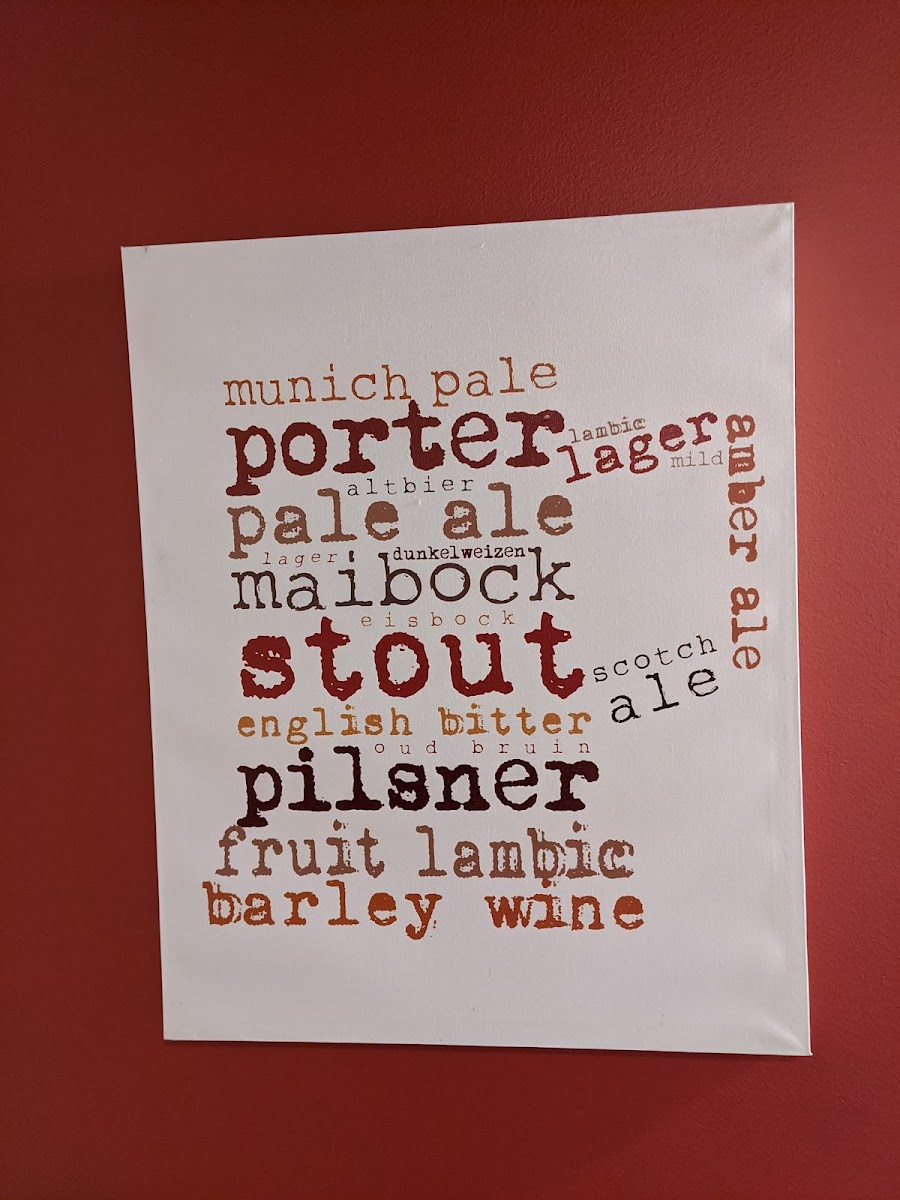 munich pale
porter
lambic
lager
mild
amber ale
altbier
pale ale
lager
dunkelweizen
maibock
eisbock
stout
scotch
ale
english bitter
oud bruin
pilsner
fruit lambic
barley wine